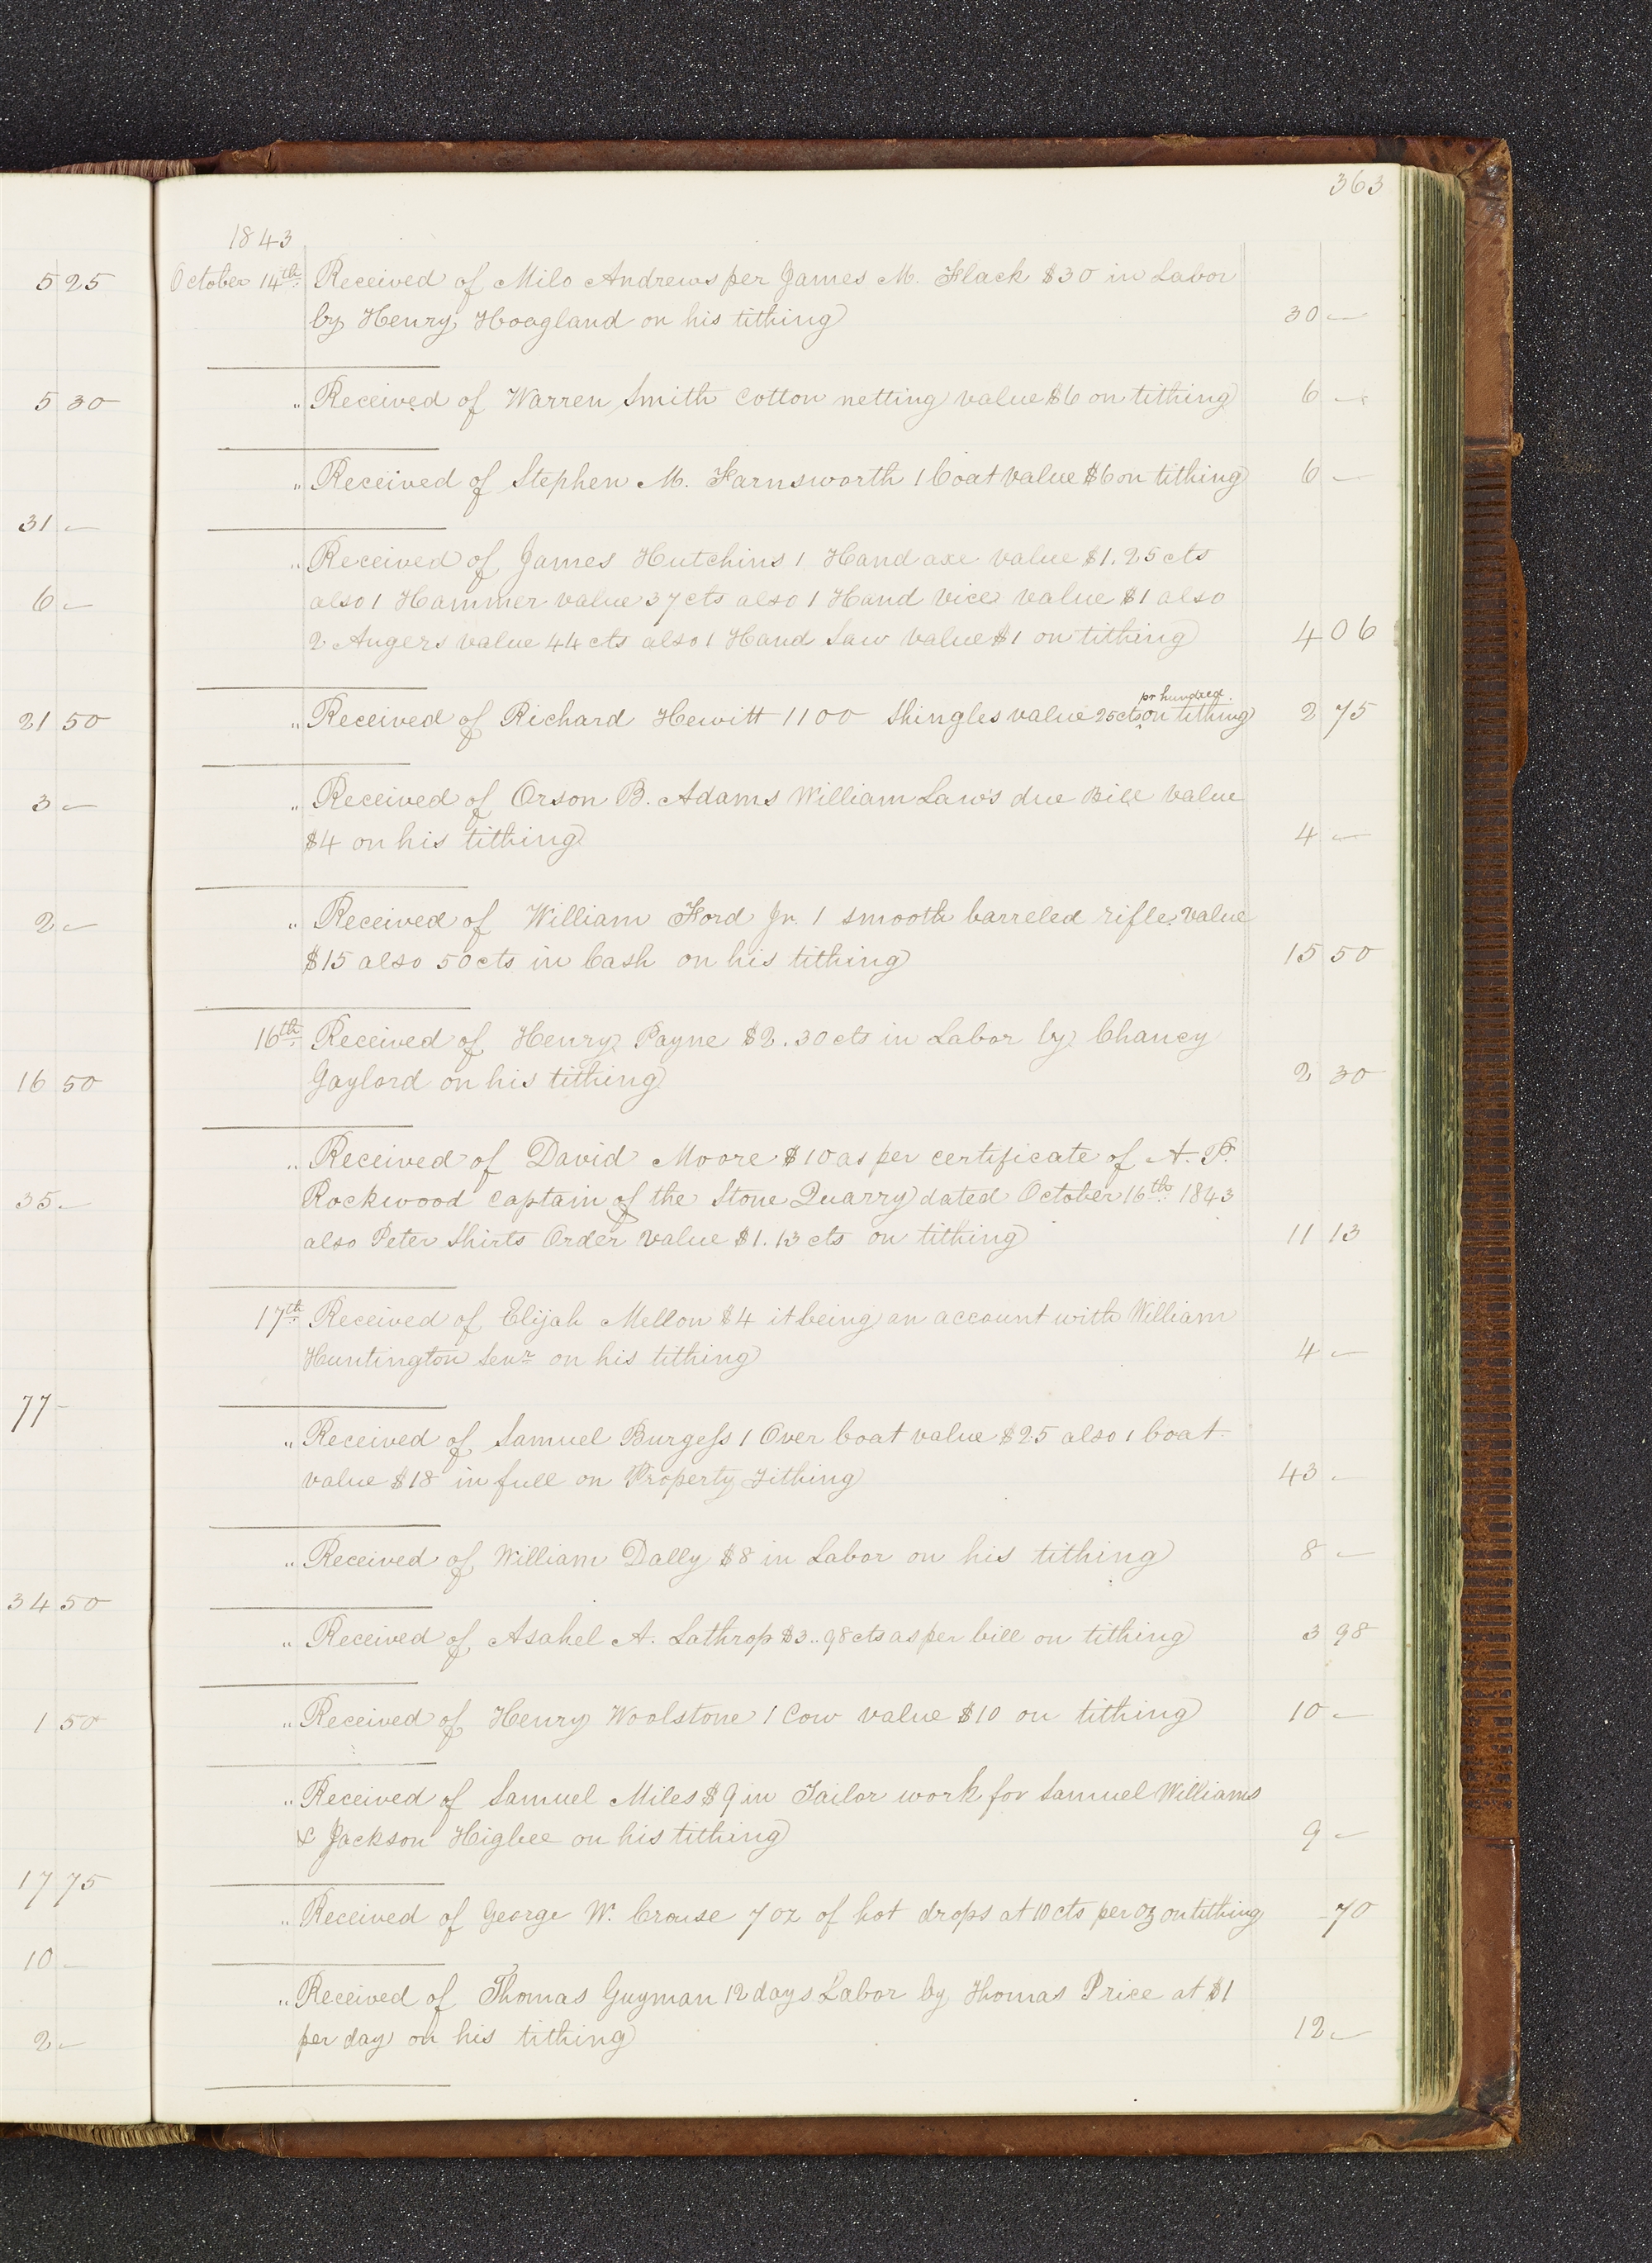 363
1843
October 14th Received of Milo Andrews per James M. Flack $30 in Labor
by Henry Hoagland on his tithing 30 —
„ Received of Warren Smith Cotton netting value $6 on tithing 6 —
„ Received of Stephen M. Farnsworth 1 Coat value $6 on tithing 6 —
„ Received of James Hutchins 1 Hand axe value $1.25 cts
also 1 Hammer value 37 cts also 1 Hand Vice value $1 also
2 Augers value 44 cts also 1 Hand Saw value $1 on tithing 4 06
pr hundred.
„ Received of Richard Hewitt 1100 Shingles value 25 cts ‸ on tithing 2 75
„ Received of Orson B. Adams William Law's due Bill value
$4 on his tithing 4 —
„ Received of William Ford Jr. 1 smooth barreled rifle value
$15 also 50 cts in Cash on his tithing 15 50
16th Received of Henry Payne $2.30 cts in Labor by Chancy
Gaylord on his tithing 2 30
„ Received of David Moore $10 as per certificate of A. P.
Rockwood Captain of the Stone Quarry dated October 16th 1843
also Peter Shirts Order value $1.13 cts on tithing 11 13
17th Received of Elijah Mellon $4 it being an account with William
Huntington Senr on his tithing 4 —
„ Received of Samuel Burgess 1 Over Coat value $25 also 1 Coat
value $18 in full on Property Tithing 43 -
„ Received of William Dally $8 in Labor on his tithing 8 —
„ Received of Asahel A. Lathrop $3..98 cts as per bill on tithing 3 98
„ Received of Henry Woolstone 1 Cow value $10 on tithing 10 —
„ Received of Samuel Miles $9 in Tailor work for Samuel Williams
& Jackson Higbee on his tithing 9 —
„ Received of George W. Crouse 7 oz of hot drops at 10 cts per oz on tithing - 70
„ Received of Thomas Guyman 12 days Labor by Thomas Price at $1
per day on his tithing 12 —
5 25
5 30
31 —
6 —
21 50
3 —
2 —
16 50
35 -
77 -
34 50
1 50
17 75
10 -
2 -